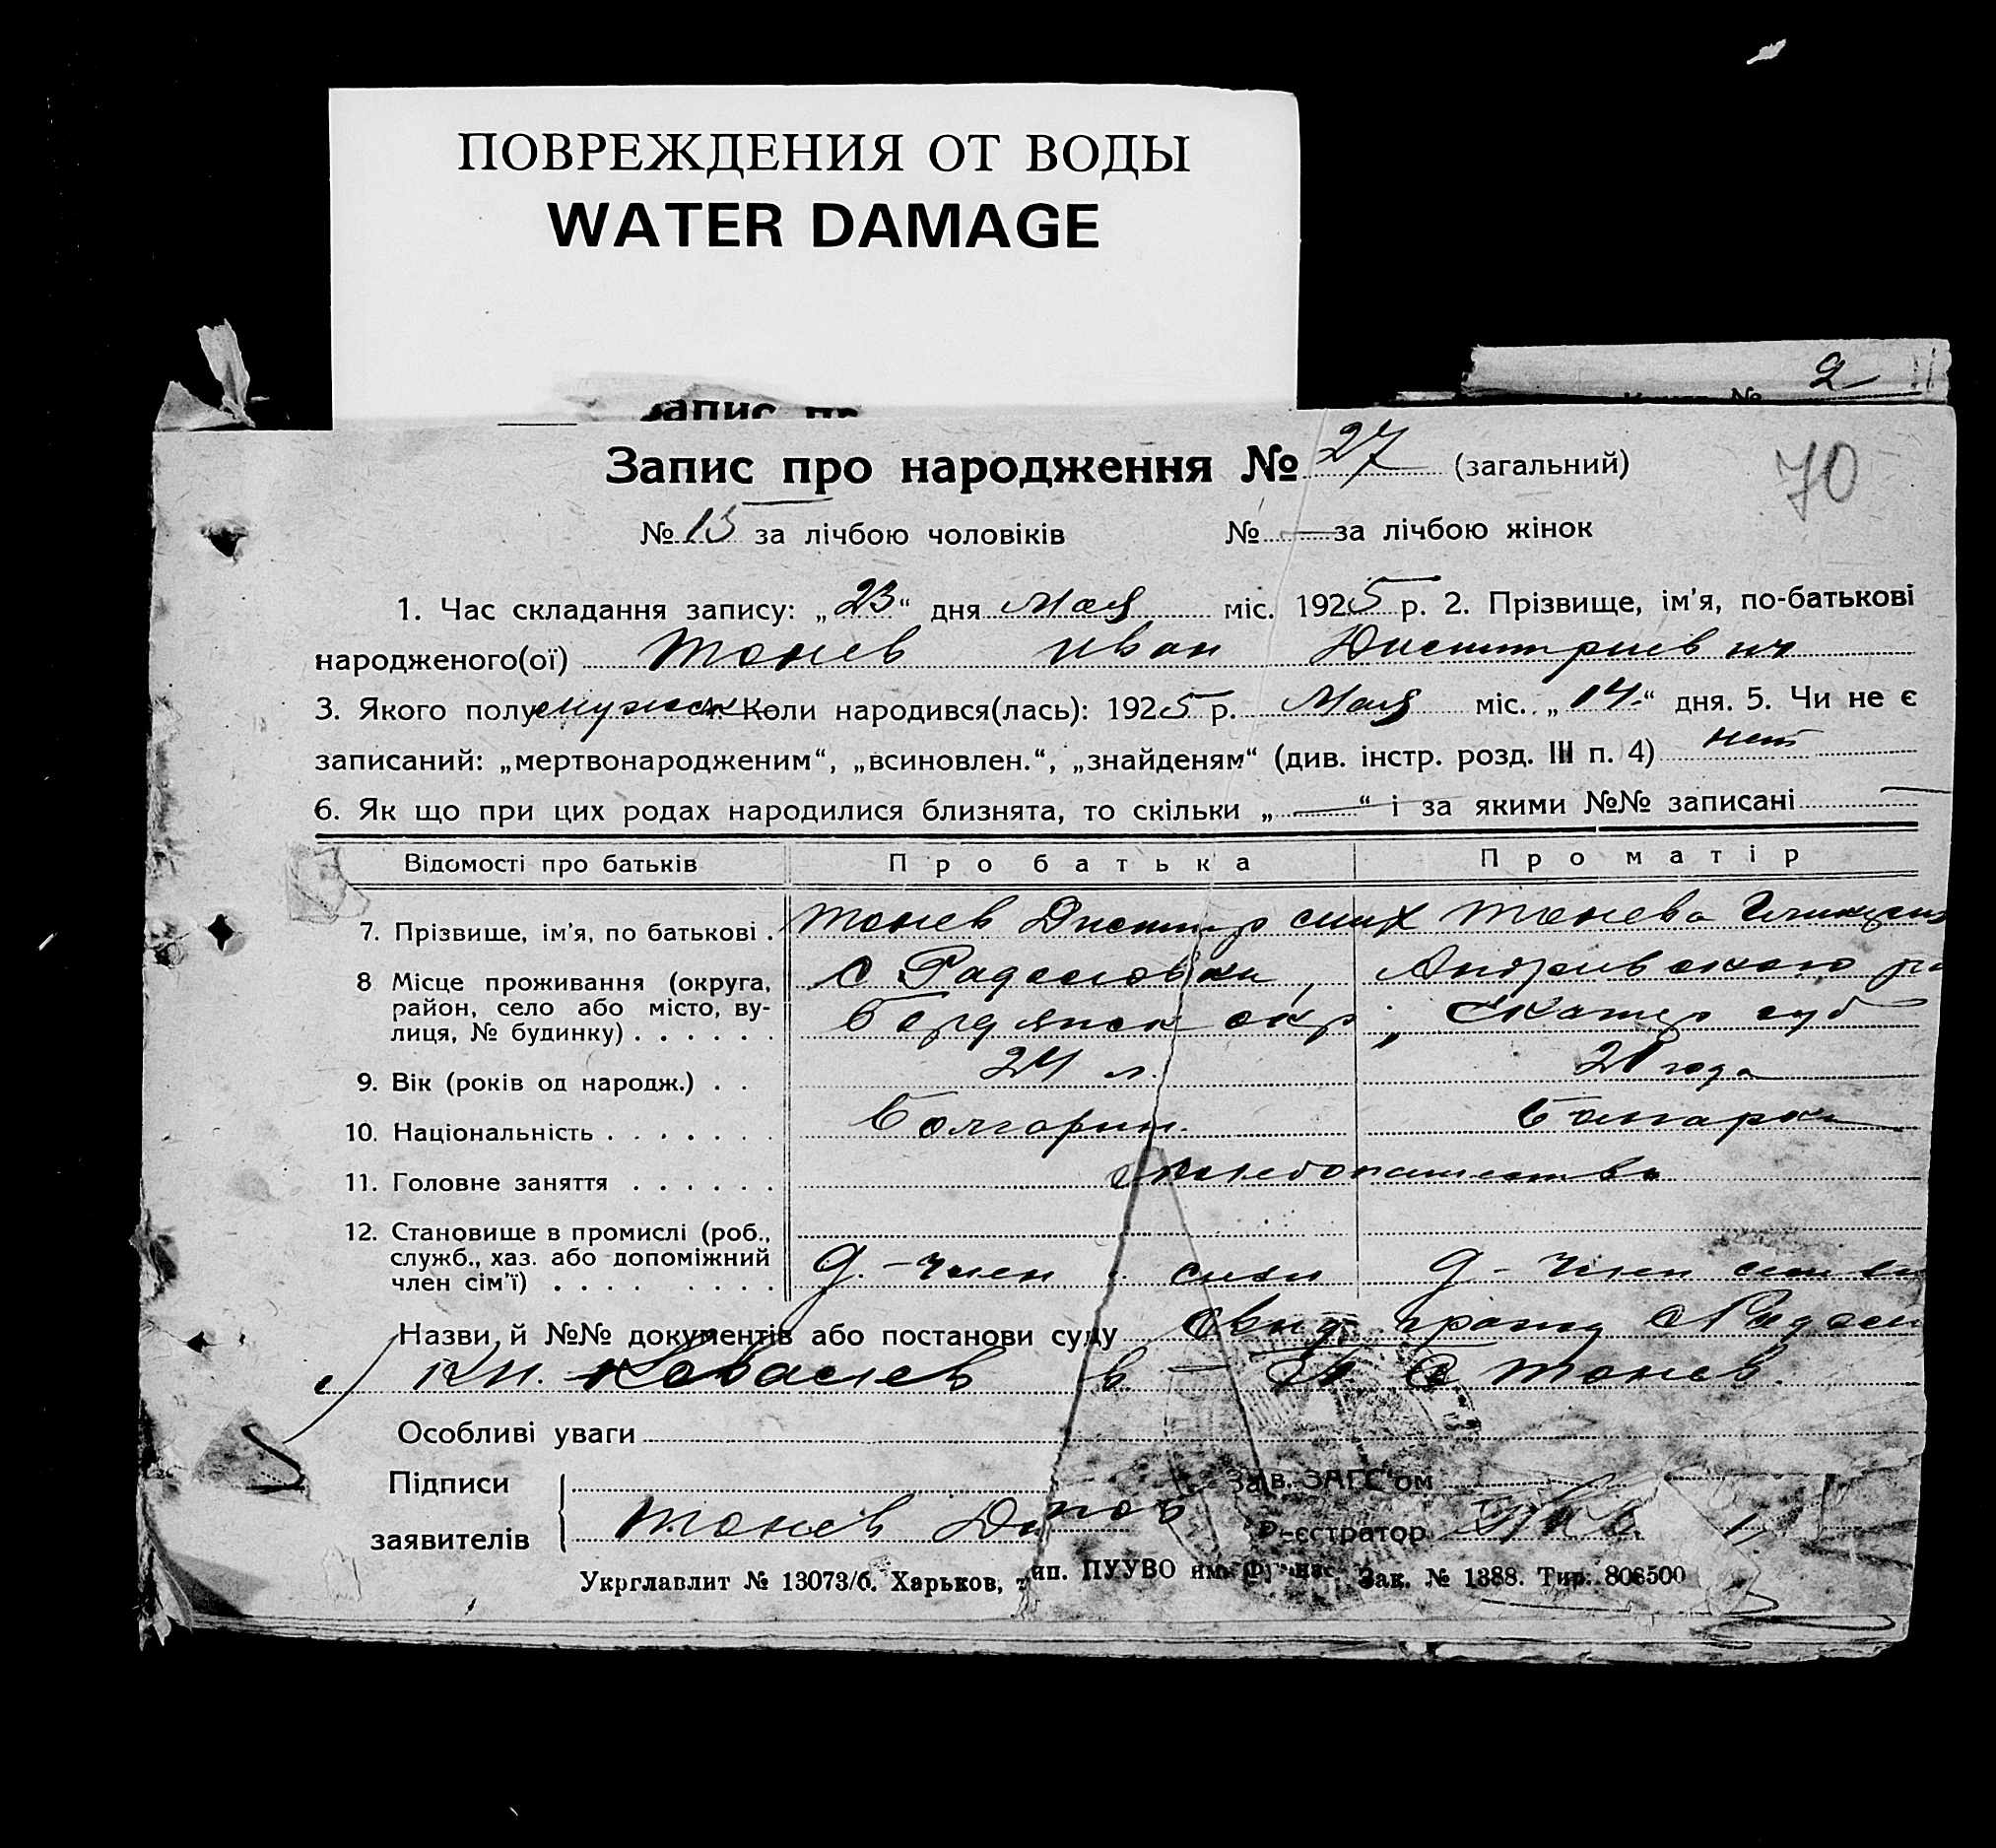 ПОВРЕЖДЕНИЯ ОТ ВОДЫ
WATER DAMAGE
2
апис пр
№
Запис про народження № 27 (загальний)
70
№ 15 за лічбою чоловіків № — за лічбою жінок
1. Час складання запису: „23“ дня Мая міс. 1925 р. 2. Прізвище, ім’я, по-батькові
народженого(ої) Тонев Иван Дмитриевич
3. Якого полу мужск 4. Коли народився(лась): 1925 р. Мая міс. „14“ дня. 5. Чи не є
записаний: „мертвонародженим“, „всиновлен.“, „знайденям“ (див. інстр. розд. III п. 4) нет
6. Як що при цих родах народилися близнята, то скільки „—“ і за якими №№ записані —
Відомості про батьків Про батька Про матір
7. Прізвище, ім’я, по батькові . Тонев Дмитр Тонева
8 Місце проживання (округа, с Радоловки, Андриевского
район, село або місто, ву-
лиця, № будинку) . . . . . . Бердянск окр, Екатер губ
9. Вік (років од народж.) . . 24 л. 21 года
10. Національність . . . . . . . Болгарин. Болгарка
11. Головне заняття . . . . . . хлебопашество
12. Становище в промислі (роб.,
служб., хаз. або допоміжний
член сім’ї) . . . . . . . . д.-член семи д-член семи
Назви й №№ документів або постанови суду с
Кн. в Тонев.
Особливі уваги
Підписи Зав. ЗАГС’ом
заявителів Тонев Реєстратор
Укрглавлит № 13073/б. Харьков, тип. ПУУВО им. Фрунзе Зак. № 1388. Тир. 806500